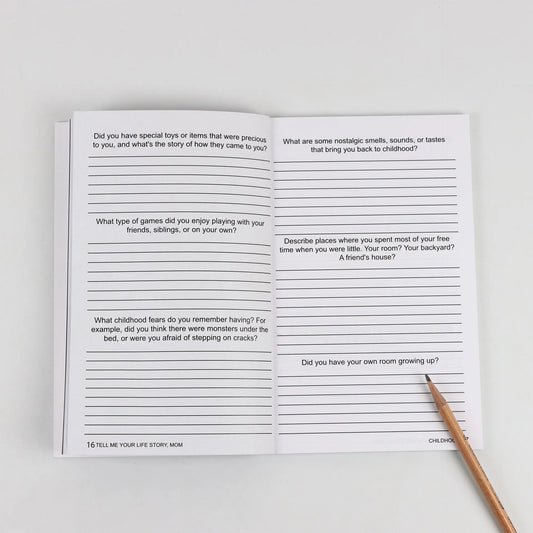 Did you have special toys or items that were precious
to you, and what's the story of how they came to you?
What type of games did you enjoy playing with your
friends, siblings, or on your own?
What childhood fears do you remember having? For
example, did you think there were monsters under the
bed, or were you afraid of stepping on cracks?
16 TELL ME YOUR LIFE STORY, MOM
What are some nostalgic smells, sounds, or tastes
that bring you back to childhood?
Describe places where you spent most of your free
time when you were little. Your room? Your backyard?
A friend's house?
Did you have your own room growing up?